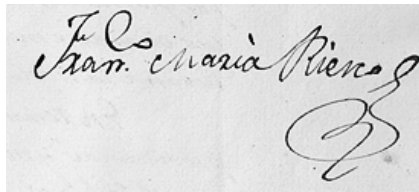 Fran.co Marià Riesco